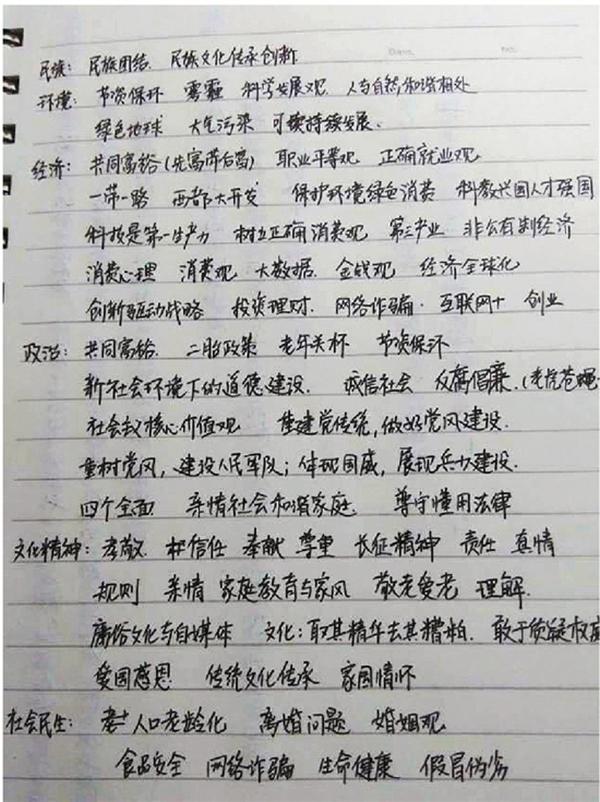 民族：民族团结 民族文化传承创新
环境：节资保环 雾霾 科学发展观 人与自然和谐相处
绿色地球 大气污染 可续持续发展.
经济：共同富裕(先富带后富) 职业平等观 正确就业观
一带一路 西部大开发 保护环境绿色消费 科教兴国人才强国
科技是第一生产力 树立正确消费观 第三产业 非公有制经济
消费心理 消费观 大数据. 金钱观 经济全球化
创新驱动战略 投资理财. 网络诈骗. 互联网+ 创业
政治：共同富裕. 二胎政策 老年关怀 节资保环
新社会环境下的道德建设. 诚信社会 反腐倡廉.(老虎苍蝇
社会主义核心价值观 重建党传统,做好党风建设.
重树党风，建设人民军队；体现国威，展现兵力建设.
四个全面 亲情社会和谐家庭. 尊守懂用法律
文化精神：孝敬. 相信任 奉献 尊重 长征精神 责任 真情
规则 亲情 家庭教育与家风 敬老爱老 理解.
庸俗文化与自媒体 文化：取其精华去其糟粕. 敢于质疑权威
爱国感恩 传统文化传承 家国情怀
社会民生： 人口老龄化 离婚问题 婚姻观
食品安全 网络诈骗 生命健康 假冒伪劣